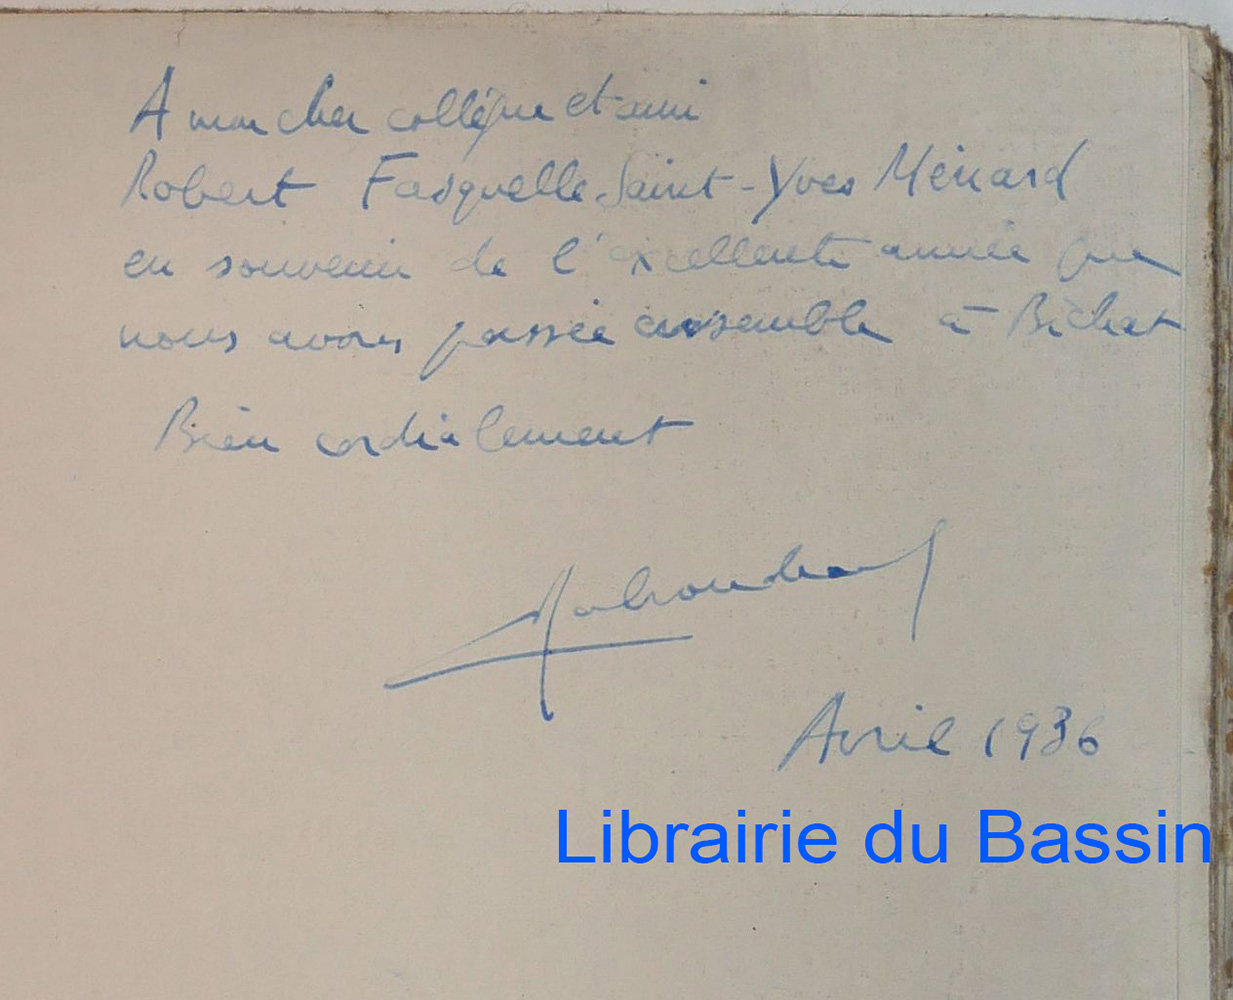 A mon cher collègue et ami
Robert Fasquelle Saint-Yves Ménard
en souvenir de l'excellente année que
nous avons passée ensemble à Bichat
Bien cordialement
Avril 1936
Librairie du Bassin